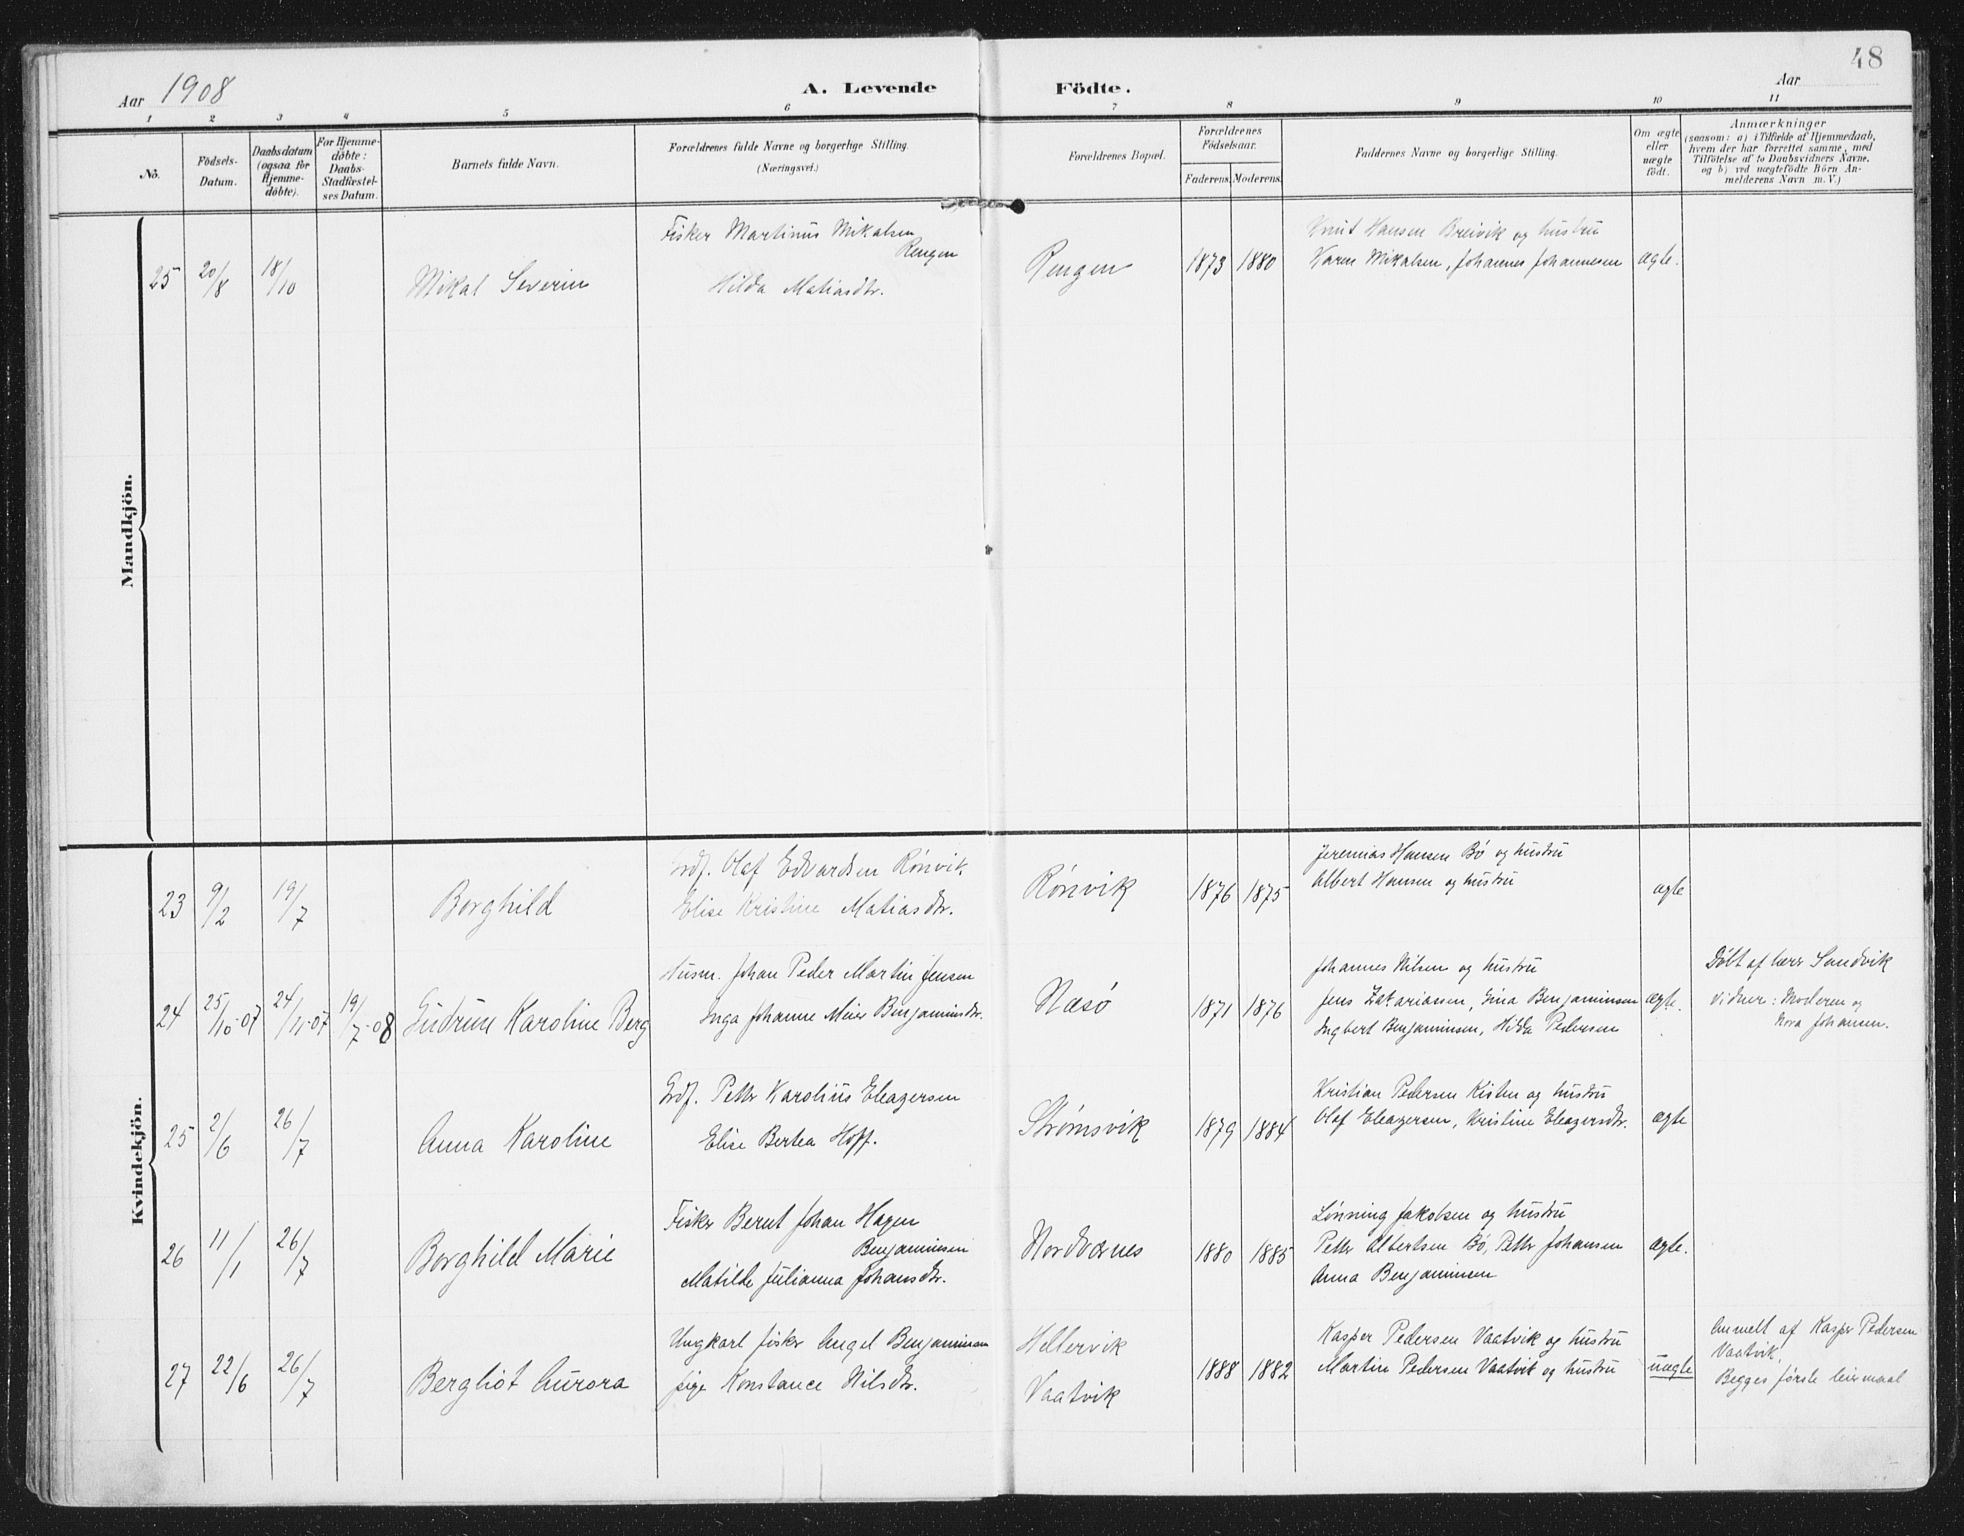 48
Aar 1908
A. Levende Födte.
Aar
1 2 3 4 5 6 7 8 9 10 11
No.
Födsels-Datum.
Daabsdatum (ogsaa for Hjemme-döbte).
For Hjemme-döbte: Daabs-Stadfæstel-ses Datum.
Barnets fulde Navn.
Forældrenes fulde Navne og borgerlige Stilling.
(Næringsvei.)
Forældrenes Bopæl.
Forældrenes Födselsaar.
Faderens. Moderens.
Faddernes Navne og borgerlige Stilling.
Om ægte eller uægte födt.
Anmærkninger
(saasom: a) i Tilfælde af Hjemmedaab,
hvem der har forrettet samme, med
Tilföielse af to Daabsvidners Navne.
og b) ved uægtefödte Börn An-
melderens Navn m. V.)
Mandkjön.
25 20/8 18/10 Mikal Severin
Fisker Martinus Mikalsen
Rengen
Hilda Matiasdtr.
Rengen 1873 1880
Knut Hansen Breivik og hustru
Karen Mikalsen, Johannes Johannesen
ægte.
Kvindekjön.
23 9/2 19/7 Borghild
Grdf. Olaf Edvardsen Rønvik
Elise Kristine Matiasdtr.
Rønvik 1876 1875
Jeremias Hansen Bö og hustru
Albert Hansen og hustru
ægte
24 25/10-07 24/11-07 19/7-08 Gudrun Karoline Berg
Husm. Johan Peder Martin Jensen
Inga Johanne Meier Benjaminsdtr.
Næsö 1871 1876
Johannes Nilsen og hustru
Jens Zakariassen, Gina Benjaminsen
Ingbert Benjaminsen, Hilda Pedersen
ægte.
Döbt af lærer Sandvik
Vidner: Moderen og
Nora Johansen.
25 2/6 26/7 Anna Karoline
Grdf. Petter Karolius Eleazersen
Elise Bertea Hoff.
Strømsvik 1879 1884
Kristian Pedersen Kisten og hustru
Olaf Eleazersen, Kristine Eleazersdtr.
ægte
26 11/1 26/7 Borghild Marie
Fisker Bernt Johan Hagen
Benjaminsen
Matilde Julianna Johansdtr.
Nordværnes 1880 1885
Lönning Jakobsen og hustru
Petter Albertsen Bö, Petter Johansen
Anna Benjaminsen
ægte.
27 22/6 26/7 Bergliot Aurora
Ungkarl fisker Angel Benjaminsen
pige Konstance Nilsdtr.
Hellervik
Vaatvik
1888 1882
Kasper Pedersen Vaatvik og hustru
Martin Pedersen Vaatvik og hustru
uægte
Anmelt af Kasper Pedersen
Vaatvik.
Begges første leiermaal